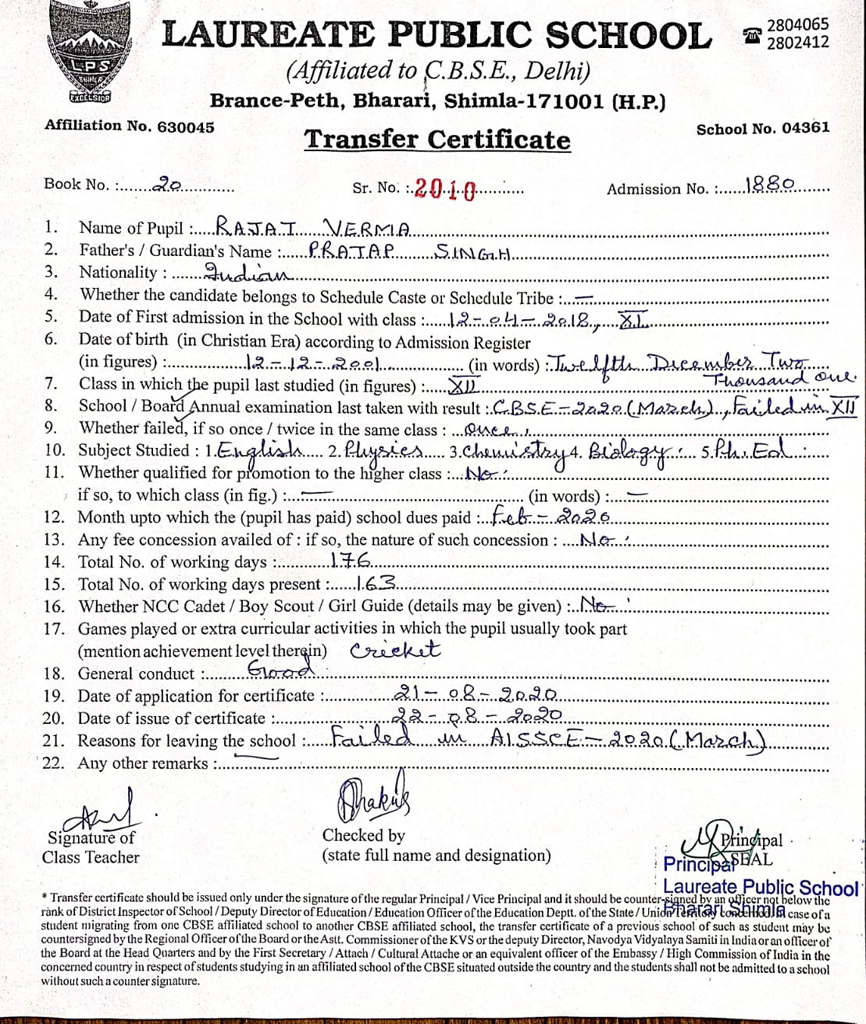 LAUREATE PUBLIC SCHOOL
2804065
2802412
L.P.S
SHIMLA
EXCELSIOR
(Affiliated to C.B.S.E., Delhi)
Brance-Peth, Bharari, Shimla-171001 (H.P.)
Affiliation No. 630045
School No. 04361
Transfer Certificate
Book No. :......20............ Sr. No. :.2010............ Admission No. :.....1880........
1. Name of Pupil :.....RAJAT VERMA
2. Father's / Guardian's Name :......PRATAP SINGH
3. Nationality : .......Indian
4. Whether the candidate belongs to Schedule Caste or Schedule Tribe :..—
5. Date of First admission in the School with class :...12-04-2018, XI
6. Date of birth (in Christian Era) according to Admission Register
(in figures) :..........12-12-2001.......... (in words) :Twelfth December Two
Thousand one
7. Class in which the pupil last studied (in figures) :....XII
8. School / Board Annual examination last taken with result :.C.B.S.E-2020(March), Failed in XII
9. Whether failed, if so once / twice in the same class :..once.
10. Subject Studied : 1.English.... 2.Physics...... 3.Chemistry 4. Biology... 5.Ph.Ed
11. Whether qualified for promotion to the higher class :..No.
if so, to which class (in fig.) :..—.......... (in words) :..—
12. Month upto which the (pupil has paid) school dues paid :..Feb-2020
13. Any fee concession availed of : if so, the nature of such concession : ....No.
14. Total No. of working days :..........176
15. Total No. of working days present :.....163
16. Whether NCC Cadet / Boy Scout / Girl Guide (details may be given) :..No
17. Games played or extra curricular activities in which the pupil usually took part
(mention achievement level therein) Cricket
18. General conduct :........Good
19. Date of application for certificate :.........21-08-2020
20. Date of issue of certificate :..........22-08-2020
21. Reasons for leaving the school :.....Failed in AISSCE-2020(March)
22. Any other remarks :..—
Signature of
Class Teacher
Checked by
(state full name and designation)
Principal
SEAL
Principal
Laureate Public School
Bharari Shimla
* Transfer certificate should be issued only under the signature of the regular Principal / Vice Principal and it should be counter-signed by an officer not below the
rank of District Inspector of School / Deputy Director of Education / Education Officer of the Education Deptt. of the State / Union case of a
student migrating from one CBSE affiliated school to another CBSE affiliated school, the transfer certificate of a previous school of such as student may be
countersigned by the Regional Officer of the Board or the Astt. Commissioner of the KVS or the deputy Director, Navodya Vidyalaya Samiti in India or an officer of
the Board at the Head Quarters and by the First Secretary / Attach / Cultural Attache or an equivalent officer of the Embassy / High Commission of India in the
concerned country in respect of students studying in an affiliated school of the CBSE situated outside the country and the students shall not be admitted to a school
without such a counter signature.